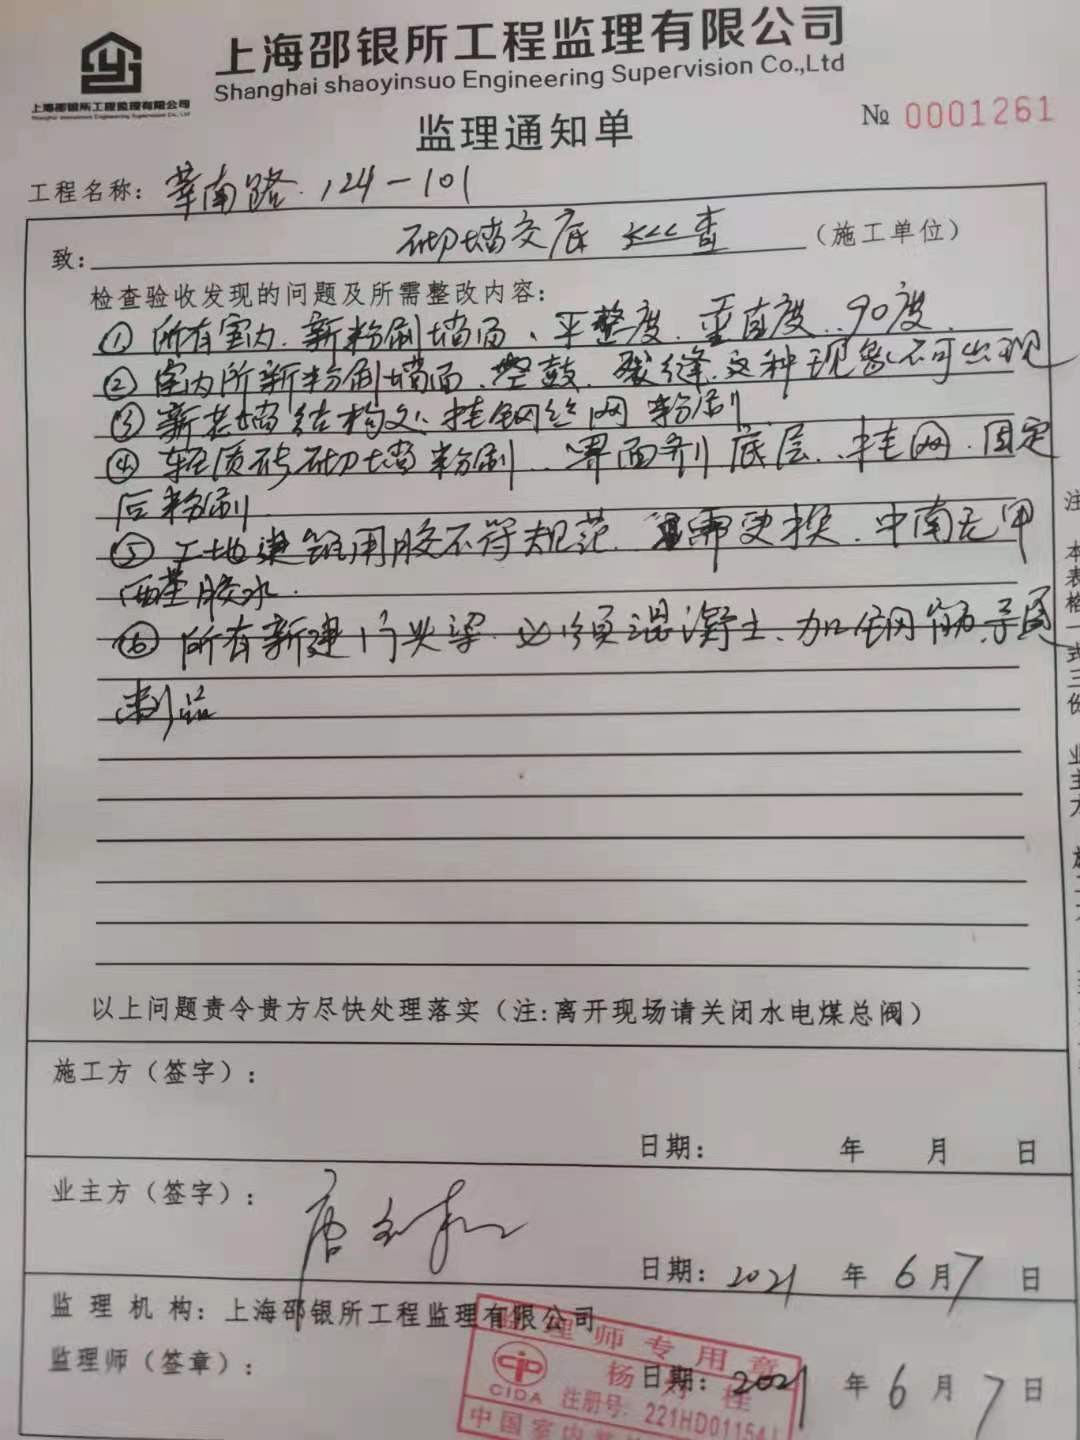 上海邵银所工程监理有限公司
Shanghai shaoyinsuo Engineering Supervision Co.,Ltd
上海邵银所工程监理有限公司
监理通知单
№ 0001261
工程名称: 莘南路.124-101
致: 砌墙交底 查 (施工单位)
检查验收发现的问题及所需整改内容:
① 所有室内.新粉刷墙面、平整度.垂直度..90度.
② 室内所新粉刷墙面.空鼓.裂缝.这种现象不可出现
③ 新老墙结构处.挂钢丝网粉刷
④ 轻质砖砌墙粉刷..界面剂底层..挂网.固定
后粉刷.
⑤ 工地 用胶不符规范. 需更换.中南无甲
醛基胶水.
⑥ 所有新建门头梁.必须混凝土、加钢筋.
制品
以上问题责令贵方尽快处理落实(注:离开现场请关闭水电煤总阀)
施工方(签字):
日期: 年 月 日
业主方(签字): 唐
日期: 2021 年 6 月 7 日
监理机构: 上海邵银所工程监理有限公司
监理师(签章):
日期: 2021 年 6 月 7 日
监理师专用章
杨 桂
CIDA 注册号: 221HD01154
中国室内
注
本表格一式三份
业主方